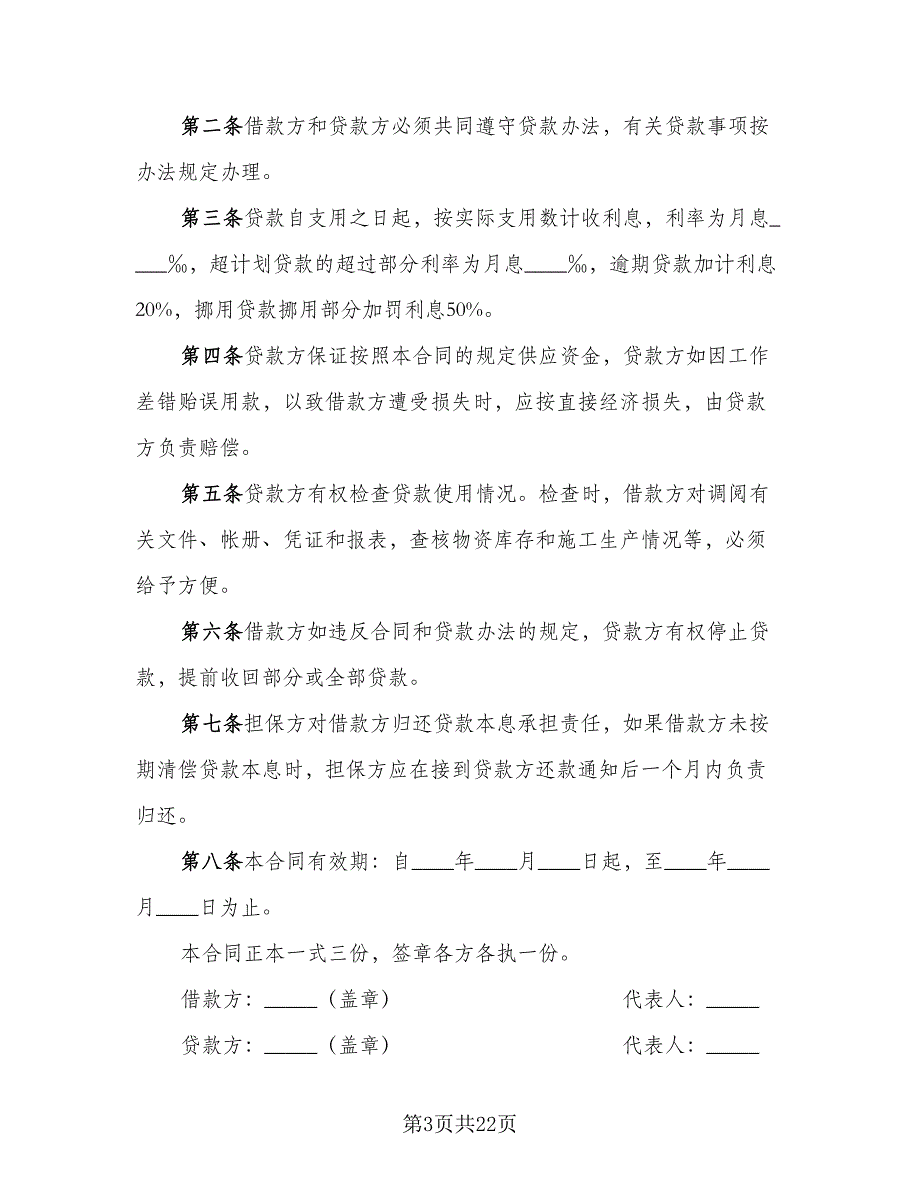 第二条借款方和贷款方必须共同遵守贷款办法，有关贷款事项按
办法规定办理。
第三条贷款自支用之日起，按实际支用数计收利息，利率为月息_
___‰，超计划贷款的超过部分利率为月息____‰，逾期贷款加计利息
20%，挪用贷款挪用部分加罚利息50%。
第四条贷款方保证按照本合同的规定供应资金，贷款方如因工作
差错贻误用款，以致借款方遭受损失时，应按直接经济损失，由贷款
方负责赔偿。
第五条贷款方有权检查贷款使用情况。检查时，借款方对调阅有
关文件、帐册、凭证和报表，查核物资库存和施工生产情况等，必须
给予方便。
第六条借款方如违反合同和贷款办法的规定，贷款方有权停止贷
款，提前收回部分或全部贷款。
第七条担保方对借款方归还贷款本息承担责任，如果借款方未按
期清偿贷款本息时，担保方应在接到贷款方还款通知后一个月内负责
归还。
第八条本合同有效期：自____年____月____日起，至____年____
月____日为止。
本合同正本一式三份，签章各方各执一份。
借款方：_____（盖章） 代表人：_____
贷款方：_____（盖章） 代表人：_____
第3页共22页